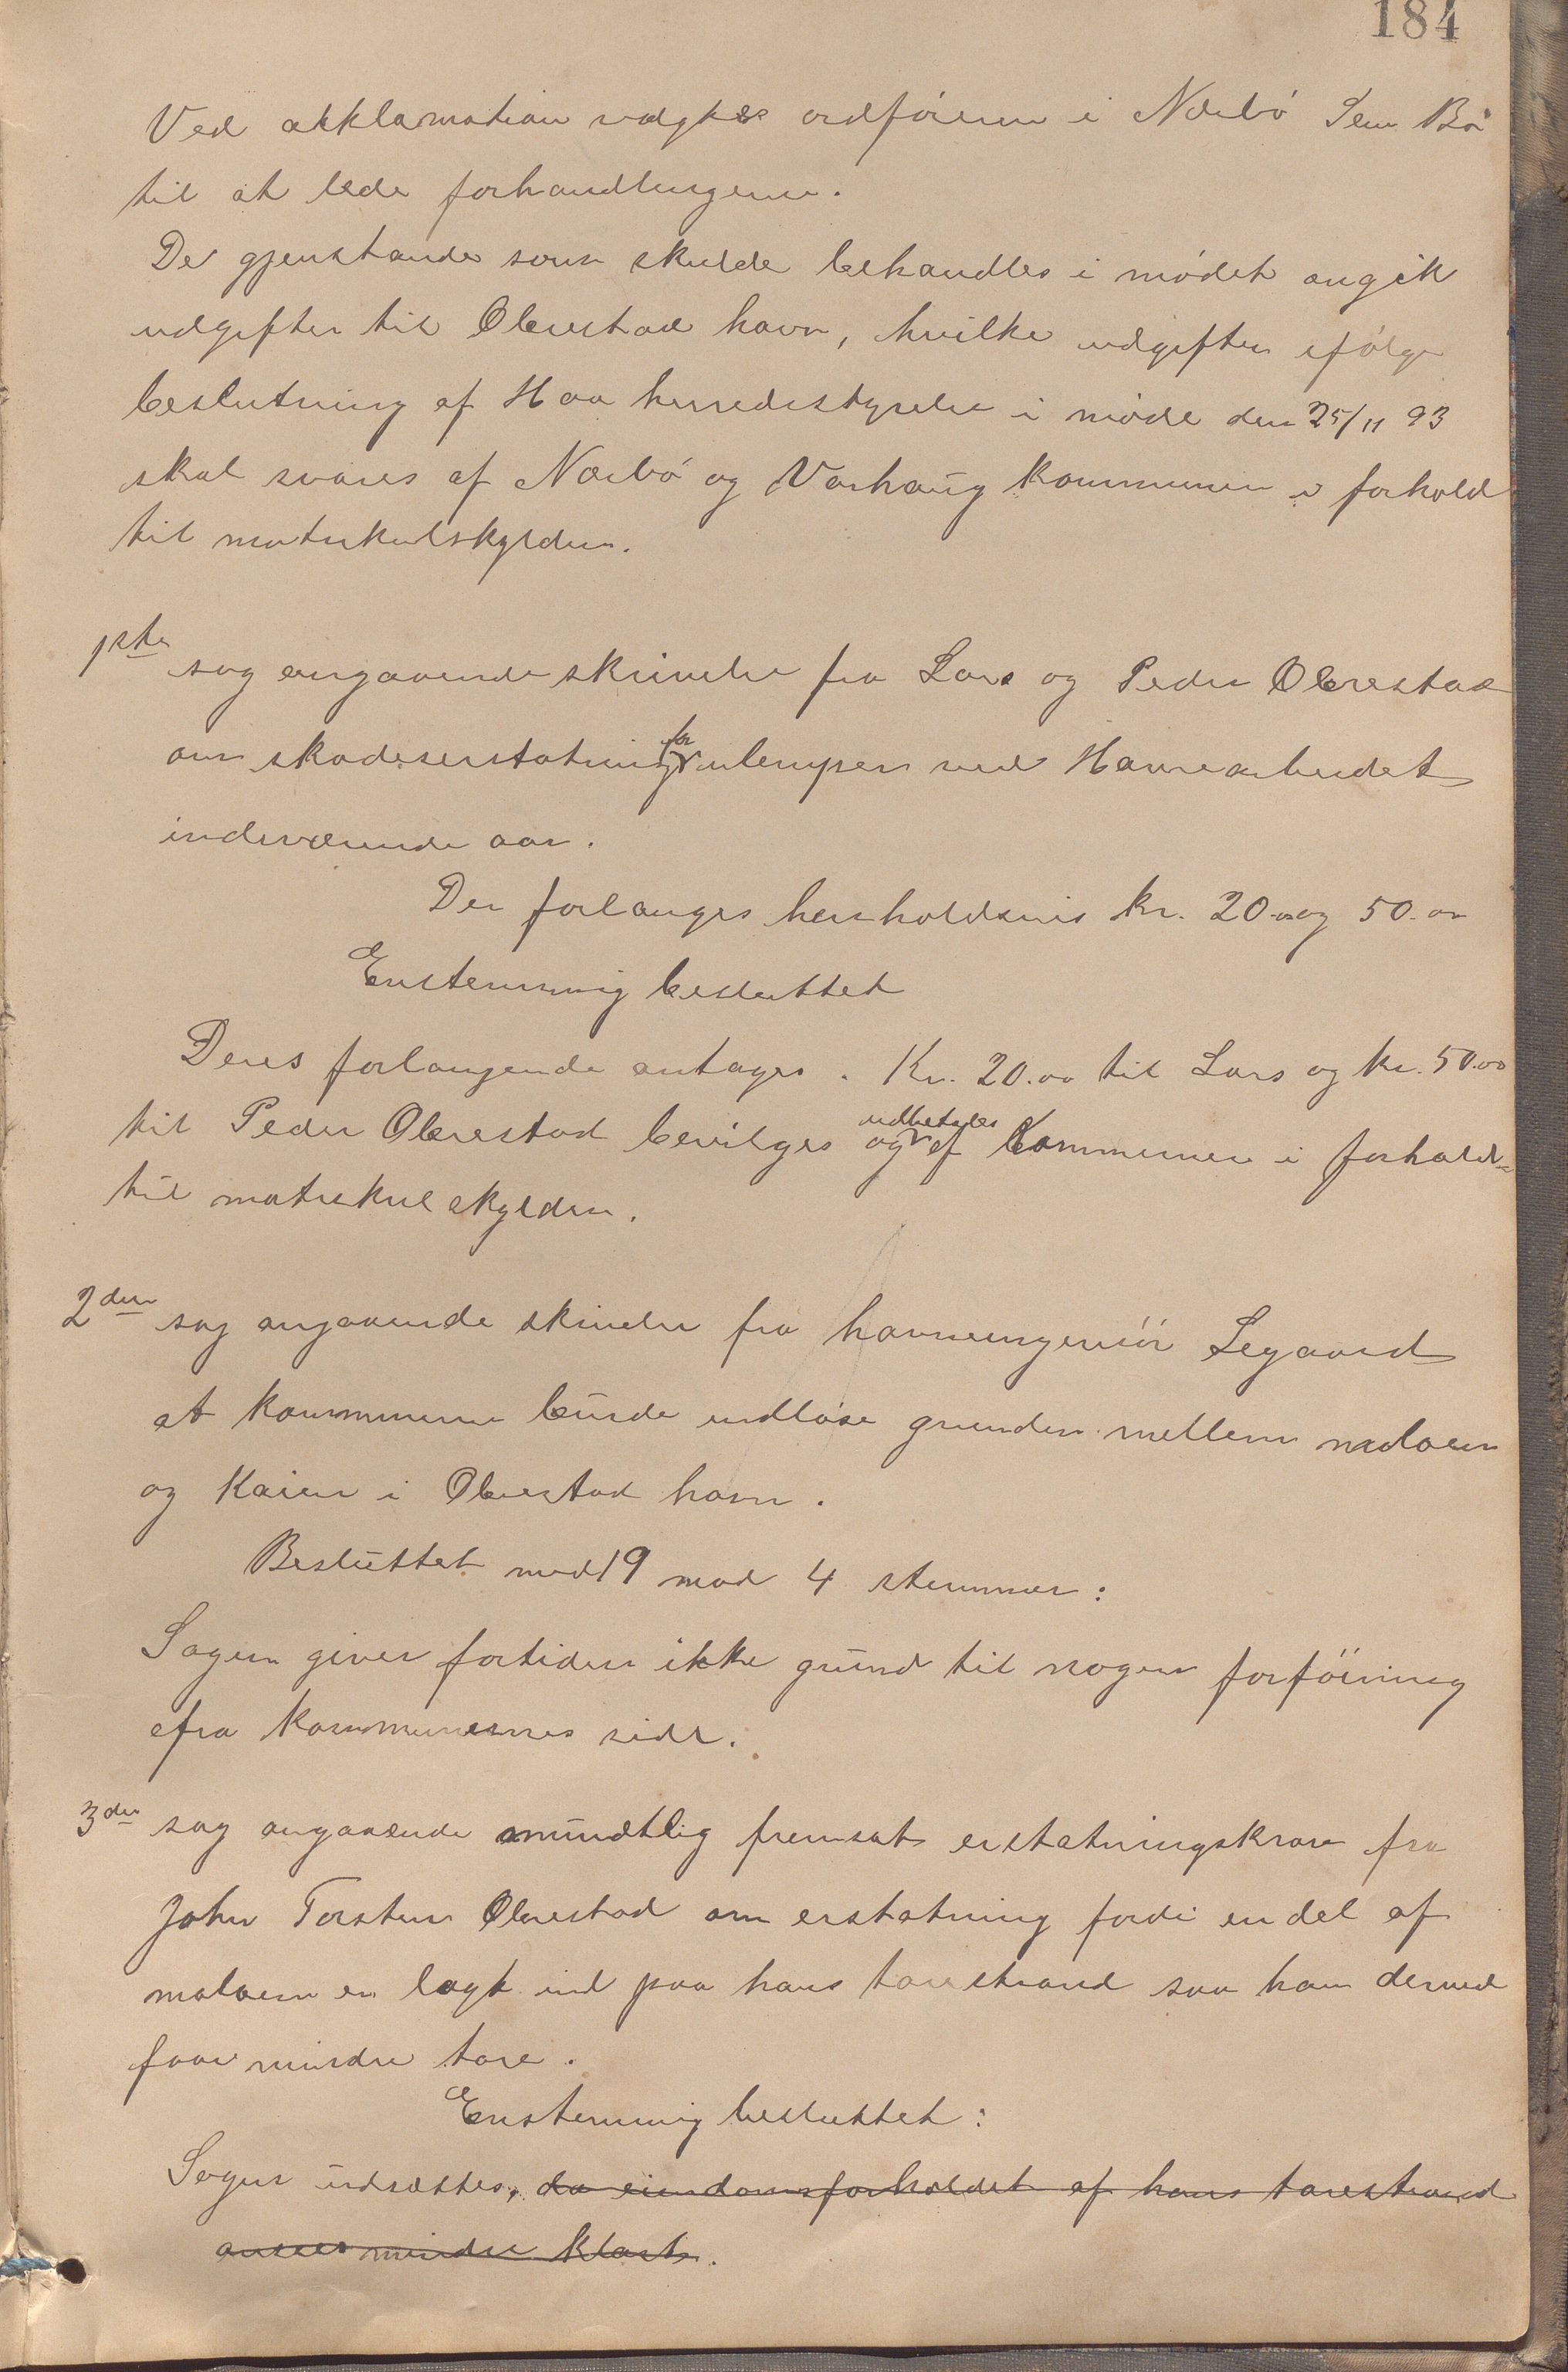 184
Ved akklamation valgtes ordføreren i Nærbø Sem Bø
til at lede forhandlingerne.
De gjenstande som skulde behandles i mødet angik
udgifter til Obrestad havn, hvilke udgifter ifølge
beslutning af Haa herredsstyrelse i møde den 25/11 93
skal svares af Nærbø og Varhaug kommuner i forhold
til matrikulskylden.
1ste sag angaaende skrivelse fra Lars og Peder Obrestad
om skadeserstatning for ulemper ved Havnearbeidet
indeværende aar.
Der forlanges henholdsvis kr. 20.00 og 50.00
Enstemmig besluttet
Deres forlangende antages. Kr. 20.00 til Lars og kr. 50.00
til Peder Obrestad bevilges og udbetales af Kommunerne i forhold
til matrikulskylden.
2den sag angaaende skrivelse fra havneingeniør Segaard
at kommunerne burde indløse grunden mellem moloen
og Kaien i Obrestad havn.
Besluttet med 19 mod 4 stemmer:
Sagen giver fortiden ikke grund til nogen forføining
fra kommunernes side.
3die sag angaaende mundtlig fremsat erstatningskrav fra
John Torsten Obrestad om erstatning fordi en del af
moloen er lagt ind paa hans tarestrand saa han derved
faar mindre tare.
Enstemmig besluttet:
Sagen udsættes, da eiendomsforholdet af hans tarestrand
ansees mindre klart.